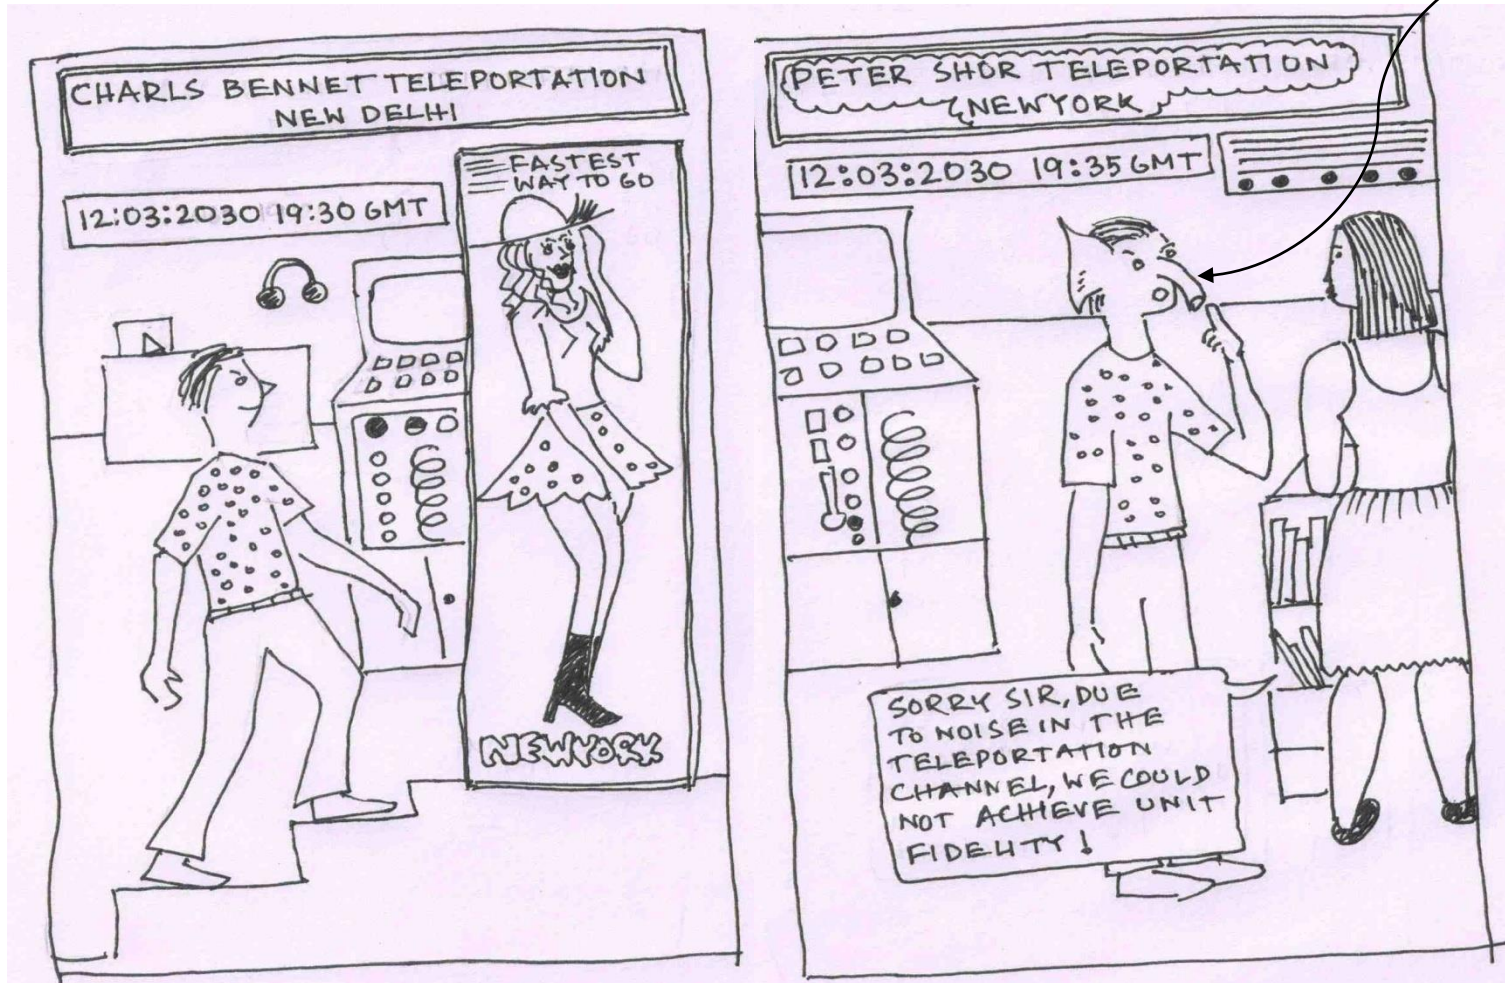 CHARLS BENNET TELEPORTATION
NEW DELHI
12:03:2030 19:30 GMT
FASTEST
WAY TO GO
NEWYORK
PETER SHOR TELEPORTATION
NEWYORK
12:03:2030 19:35 GMT
SORRY SIR, DUE
TO NOISE IN THE
TELEPORTATION
CHANNEL, WE COULD
NOT ACHIEVE UNIT
FIDELITY!